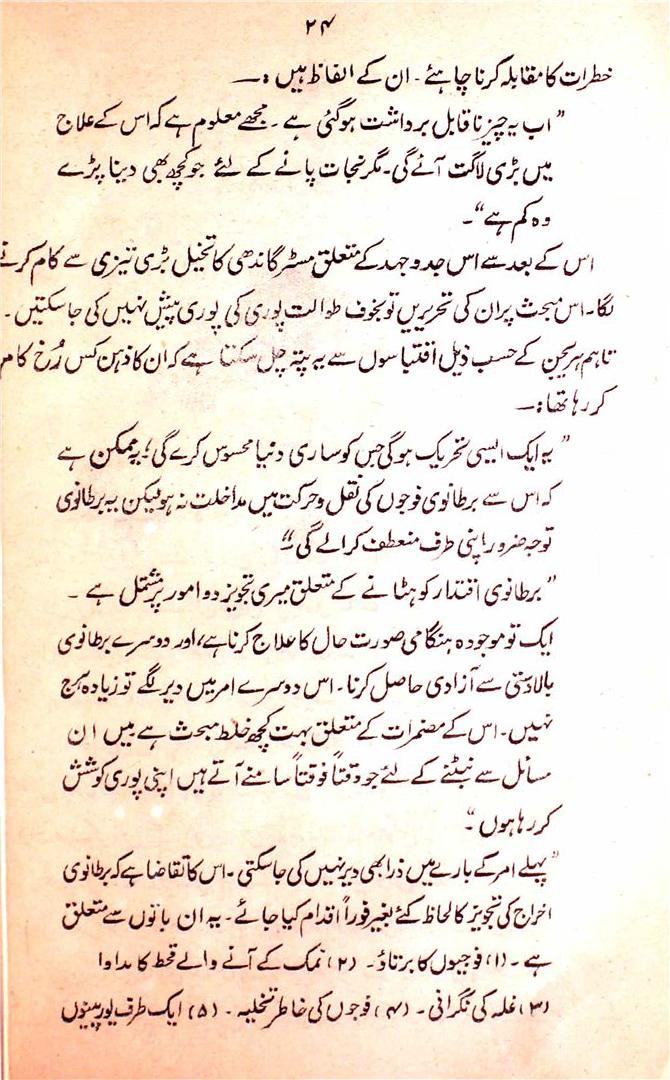 ۲۴
خطرات کا مقابلہ کرنا چاہئے۔ ان کے الفاظ ہیں :—
"اب یہ چیز ناقابل برداشت ہوگئی ہے۔ مجھے معلوم ہے کہ اس کے علاج
میں بڑی لاگت آئے گی۔ مگر نجات پانے کے لئے جو کچھ بھی دینا پڑے
وہ کم ہے"۔
اس کے بعد سے اس جدوجہد کے متعلق مسٹر گاندھی کا تخیل بڑی تیزی سے کام کرنے
لگا۔ اس مبحث پر ان کی تحریریں تو بخوف طوالت پوری کی پوری پیش نہیں کی جاسکتیں۔
تاہم ہریجن کے حسب ذیل اقتباسوں سے یہ پتہ چل سکتا ہے کہ ان کا ذہن کس رُخ کام
کر رہا تھا :—
"یہ ایک ایسی تحریک ہوگی جس کو ساری دنیا محسوس کرے گی؛ یہ ممکن ہے
کہ اس سے برطانوی فوجوں کی نقل و حرکت میں مداخلت نہ ہو لیکن یہ برطانوی
توجہ ضرور اپنی طرف منعطف کرالے گی"۔
"برطانوی اقتدار کو ہٹانے کے متعلق میری تجویز دو امور پر مشتمل ہے۔
ایک تو موجودہ ہنگامی صورت حال کا علاج کرنا ہے، اور دوسرے برطانوی
بالادستی سے آزادی حاصل کرنا۔ اس دوسرے امر میں دیر لگے تو زیادہ ہرج
نہیں۔ اس کے مضمرات کے متعلق بہت کچھ خلط مبحث ہے میں ان
مسائل سے نبٹنے کے لئے جو وقتاً فوقتاً سامنے آتے ہیں اپنی پوری کوشش
کر رہا ہوں"۔
"پہلے امر کے بارے میں ذرا بھی دیر نہیں کی جاسکتی۔ اس کا تقاضا ہے کہ برطانوی
اخراج کی تجویز کا لحاظ کئے بغیر فوراً اقدام کیا جائے۔ یہ ان باتوں سے متعلق
ہے۔ (۱) فوجیوں کا برتاؤ۔ (۲) نمک کے آنے والے قحط کا مداوا
(۳) غلہ کی نگرانی۔ (۴) فوجوں کی خاطر تخلیہ۔ (۵) ایک طرف یورپینوں